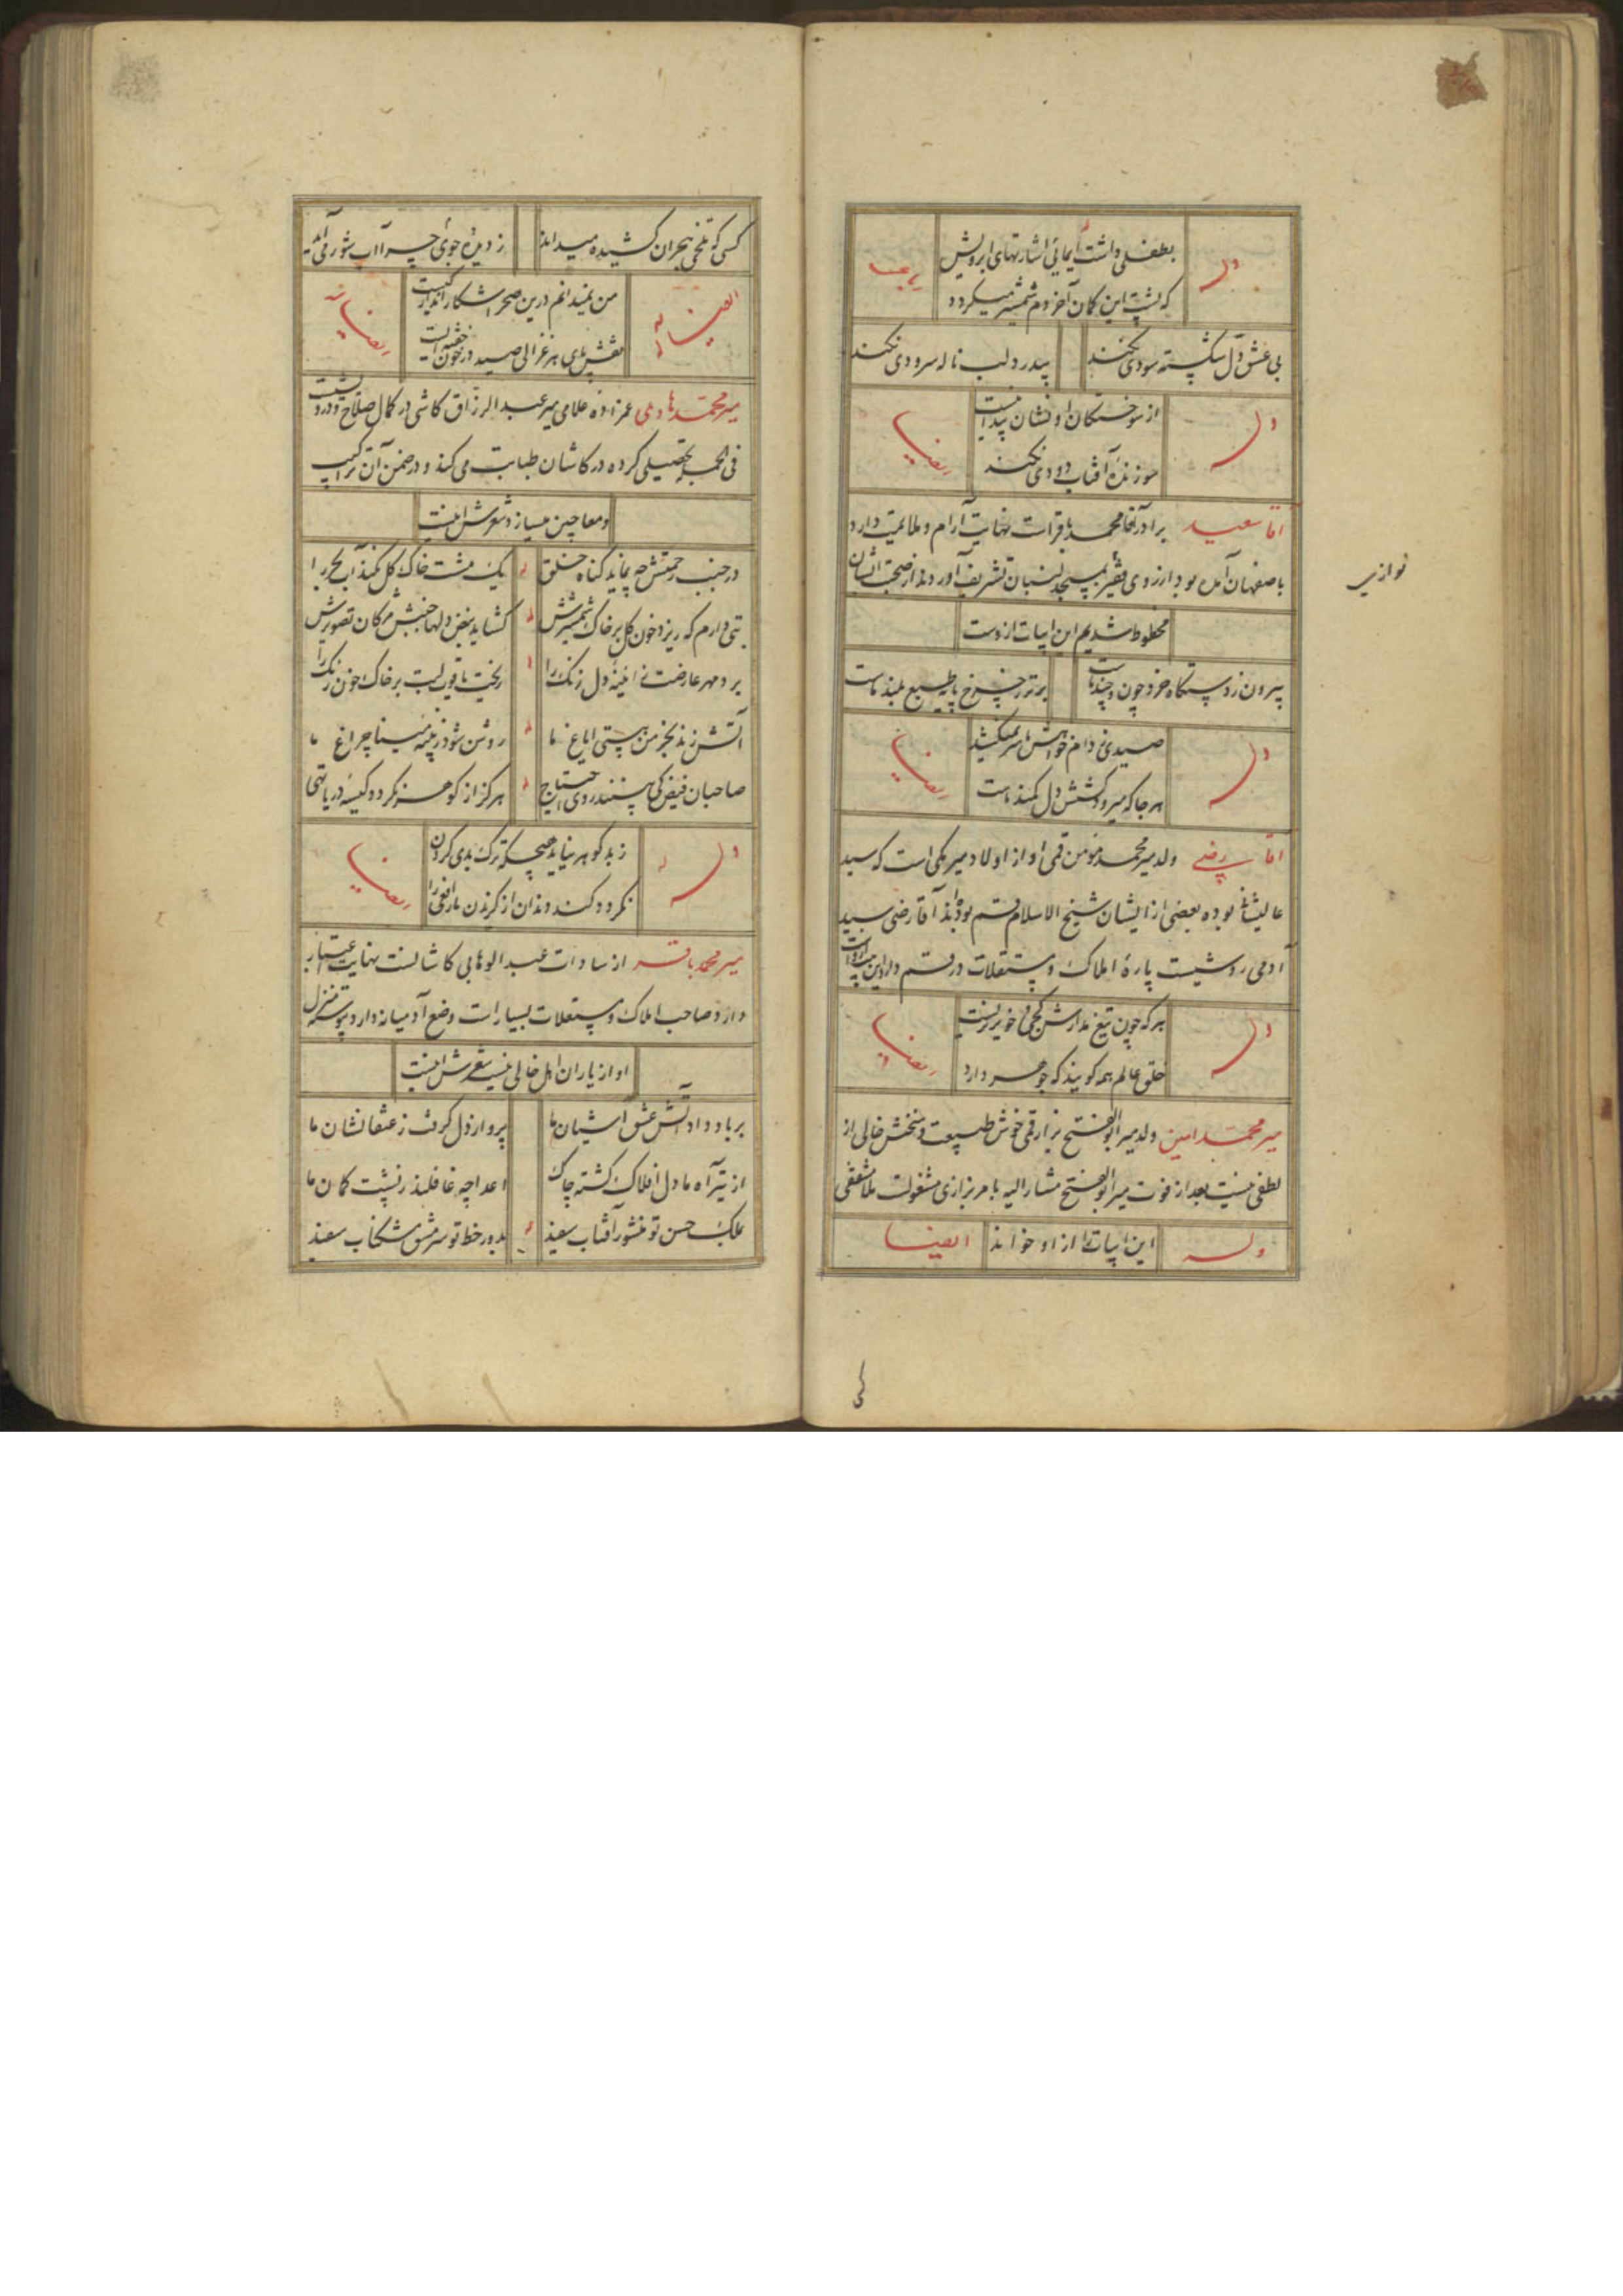 وله
بطفلی داشت ایمائی اشارتهای ابرویش
که پشت این کمان آخر دم شمشیر میگردد
بی عشق دل شکسته سودی نکند
بیدرد لب ناله سرودی نکند
وله
از سوختگان او نشان پیدا نیست
سوزنده آفتاب دودی نکند
ایضا
اقا سعید برادر آقا محمد باقر است نهایت آرام و ملایمت دارد
باصفهان آمده بود از روی فقیر بمسجد لنبان تشریف آوردند از صحبت ایشان
نوازی
محظوظ شدیم این ابیات ازوست
بیرون ز دستگاه خرد چون و چند ماست
برتر ز چرخ پایه طبع بلند ماست
وله
صیدی ز دام خواهش ما سر نمیکشد
هر جا که میرود کشش دل کمند ماست
ایضا
اقا رضی ولد میر محمد مومن قمی او از اولاد میر مکی است که سید
عالیشان بوده بعضی از ایشان شیخ الاسلام قم بوده اند آقا رضی سید
آدمی روشیست پارهٔ املاک و مستقلات در قم دارد این ابیات ازوست
وله
هر که چون تیغ مدارش کجی و خونریزیست
خلق عالم همه گویند که جوهر دارد
ایضا
میر محمد امین ولد میر ابوالفتح بزاز قمی خوش طبیعت و سخنش خالی از
لطفی نیست بعد از فوت میر ابوالفتح مشار الیه بامر بزازی مشغولست ملا مشفقی
وله
این ابیات را از او خواند
ایضا
کسی که تلخی هجران کشیده میداند
ز دیده جوی چرا آب شور می آید
ایضا له
من نمیدانم درین صحرا شکار انداز کیست
نقش پای هر غزالی صید در خون خفته ایست
ایضا له
میر محمد هادی عمزاده علامی میر عبد الرزاق کاشی در کمال صلاح و درد
فی الجمله تحصیلی کرده در کاشان طبابت می کند و در ضمن آن تراکیب
و معاجین میسازد شعرش اینست
در جنب رحمتش چه نماید گناه خلق
یک مشت خاک گل نکند آب بحر را
بتی دارم که ریزد خون گل بر خاک شمشیرش
گشاید نبض دلها جنبش مژگان تصویرش
برد مهر عارضت ز ائینه دل زنگ را
ریخت یاقوت لبت بر خاک خون رنگ را
آتش زند بخرمن هستی ایاغ ما
روشن شود ز پنبه مینا چراغ ما
صاحبان فیض کی بینند روی احتیاج
هرگز از گوهر نگردد کیسه دریا تهی
وله
ز بد گوهر نیاید هیچگه ترک بدی کردن
نگردد کند دندان از گزیدن مار افعی را
ایضا
میر محمد باقر از سادات عبد الوهابی کاشانست نهایت اعتبار
دارد و صاحب املاک و مستقلات بسیار است وضع آدمیانه دارد پیوسته منزل
او از یاران اهل خالی نیست شعرش اینست
بر باد داد آتش عشق آشیان ما
پرواز دل گرفت ز عنقا نشان ما
از تیر آه ما دل افلاک گشته چاک
اعدا چه غافلند ز پشت کمان ما
بملک حسن تو منشور آفتاب سفید
بدور خط تو سرمشق مشکناب سفید